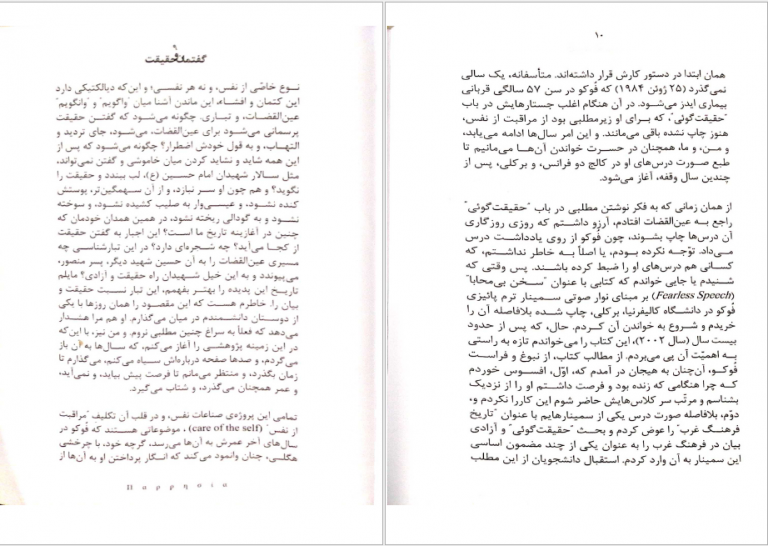 ۹
گفتمان حقیقت
نوع خاصّی از نفس، و نه هر نفسی؛ و این‌که دیالکتیکی دارد
این کتمان و افشاء، این ماندن آشنا میان "واگویم" و "وانگویم"
عین‌القضات، و تیاری. چگونه می‌شود که گفتن حقیقت
پرسمانی می‌شود برای عین‌القضات، می‌شود، جای تردید و
التهاب، و به قول خودش اضطرار؟ چگونه می‌شود که پس از
این همه شاید و نشاید کردن میان خاموشی و گفتن نمی‌تواند،
مثل سالار شهیدان امام حسین (ع)، لب ببندد و حقیقت را
نگوید؟ و هم چون او سر نبازد، و از آن سهمگین‌تر، پوستش
کنده نشود، و عیسی‌وار به صلیب کشیده نشود، و سوخته
نشود و به گودالی ریخته نشود، در همین همدان خودمان که
چنین در آغازینه تاریخ ما است؟ این اجبار به گفتن حقیقت
از کجا می‌آید؟ چه شجره‌ای دارد؟ در این تبارشناسی چه
مسیری عین‌القضات را به آن حسین شهید دیگر، پسر منصور،
می‌پیوندد و به این خیل شهیدان راه حقیقت و آزادی؟ مایلم
تاریخ این پدیده را بهتر بفهمم، این تبار نسبت حقیقت و
بیان را. خاطرم هست که این مقصود را همان روزها با یکی
از دوستان دانشمندم در میان می‌گذارم. او هم مرا هشدار
می‌دهد که فعلاً به سراغ چنین مطلبی نروم. و من نیز، با این‌که
در این زمینه پژوهشی را آغاز می‌کنم، که سال‌ها به آن باز
می‌گردم، و صدها صفحه درباره‌اش سیاه می‌کنم، می‌گذارم تا
زمان بگذرد، و منتظر می‌مانم تا فرصت پیش بیاید، و نمی‌آید،
و عمر همچنان می‌گذرد، و شتاب می‌گیرد.
تمامی این پروژه‌ی صناعات نفس، و در قلب آن تکلیف "مراقبت
از نفس" (care of the self)، موضوعاتی هستند که فوکو در
سال‌های آخر عمرش به آن‌ها می‌رسد، گرچه خود، با چرخشی
هگلی، چنان وانمود می‌کند که انگار پرداختن او به آن‌ها از
Παρρησια
۱۰
همان ابتدا در دستور کارش قرار داشته‌اند. متأسفانه، یک سالی
نمی‌گذرد (۲۵ ژوئن ۱۹۸۴) که فوکو در سن ۵۷ سالگی قربانی
بیماری ایدز می‌شود. در آن هنگام اغلب جستارهایش در باب
"حقیقت‌گوئی"، که برای او زیرمطلبی بود از مراقبت از نفس،
هنوز چاپ نشده باقی می‌مانند. و این امر سال‌ها ادامه می‌یابد،
و من، و ما، همچنان در حسرت خواندن آن‌ها می‌مانیم تا
طبع صورت درس‌های او در کالج دو فرانس، و برکلی، پس از
چندین سال وقفه، آغاز می‌شود.
از همان زمانی که به فکر نوشتن مطلبی در باب "حقیقت‌گوئی"
راجع به عین‌القضات افتادم، آرزو داشتم که روزی روزگاری
آن درس‌ها چاپ بشوند، چون فوکو از روی یادداشت درس
می‌داد. توجّه نکرده بودم، یا اصلاً به خاطر نداشتم، که
کسانی هم درس‌های او را ضبط کرده باشند. پس وقتی که
شنیدم یا جایی خواندم که کتابی با عنوان "سخن بی‌محابا"
(Fearless Speech) بر مبنای نوار صوتی سمینار ترم پائیزی
فوکو در دانشگاه کالیفرنیا، برکلی، چاپ شده بلافاصله آن را
خریدم و شروع به خواندن آن کردم. حال، که پس از حدود
بیست سال (سال ۲۰۰۲)، این کتاب را می‌خواندم تازه به راستی
به اهمیّت آن پی می‌بردم. از مطالب کتاب، از نبوغ و فراست
فوکو، آن‌چنان به هیجان در آمدم که، اوّل، افسوس خوردم
که چرا هنگامی که زنده بود و فرصت داشتم او را از نزدیک
بشناسم و مرتّب سر کلاس‌هایش حاضر شوم این کاررا نکردم و،
دوّم، بلافاصله صورت درس یکی از سمینارهایم با عنوان "تاریخ
فرهنگ غرب" را عوض کردم و بحث "حقیقت‌گوئی" و آزادی
بیان در فرهنگ غرب را به عنوان یکی از چند مضمون اساسی
این سمینار به آن وارد کردم. استقبال دانشجویان از این مطلب